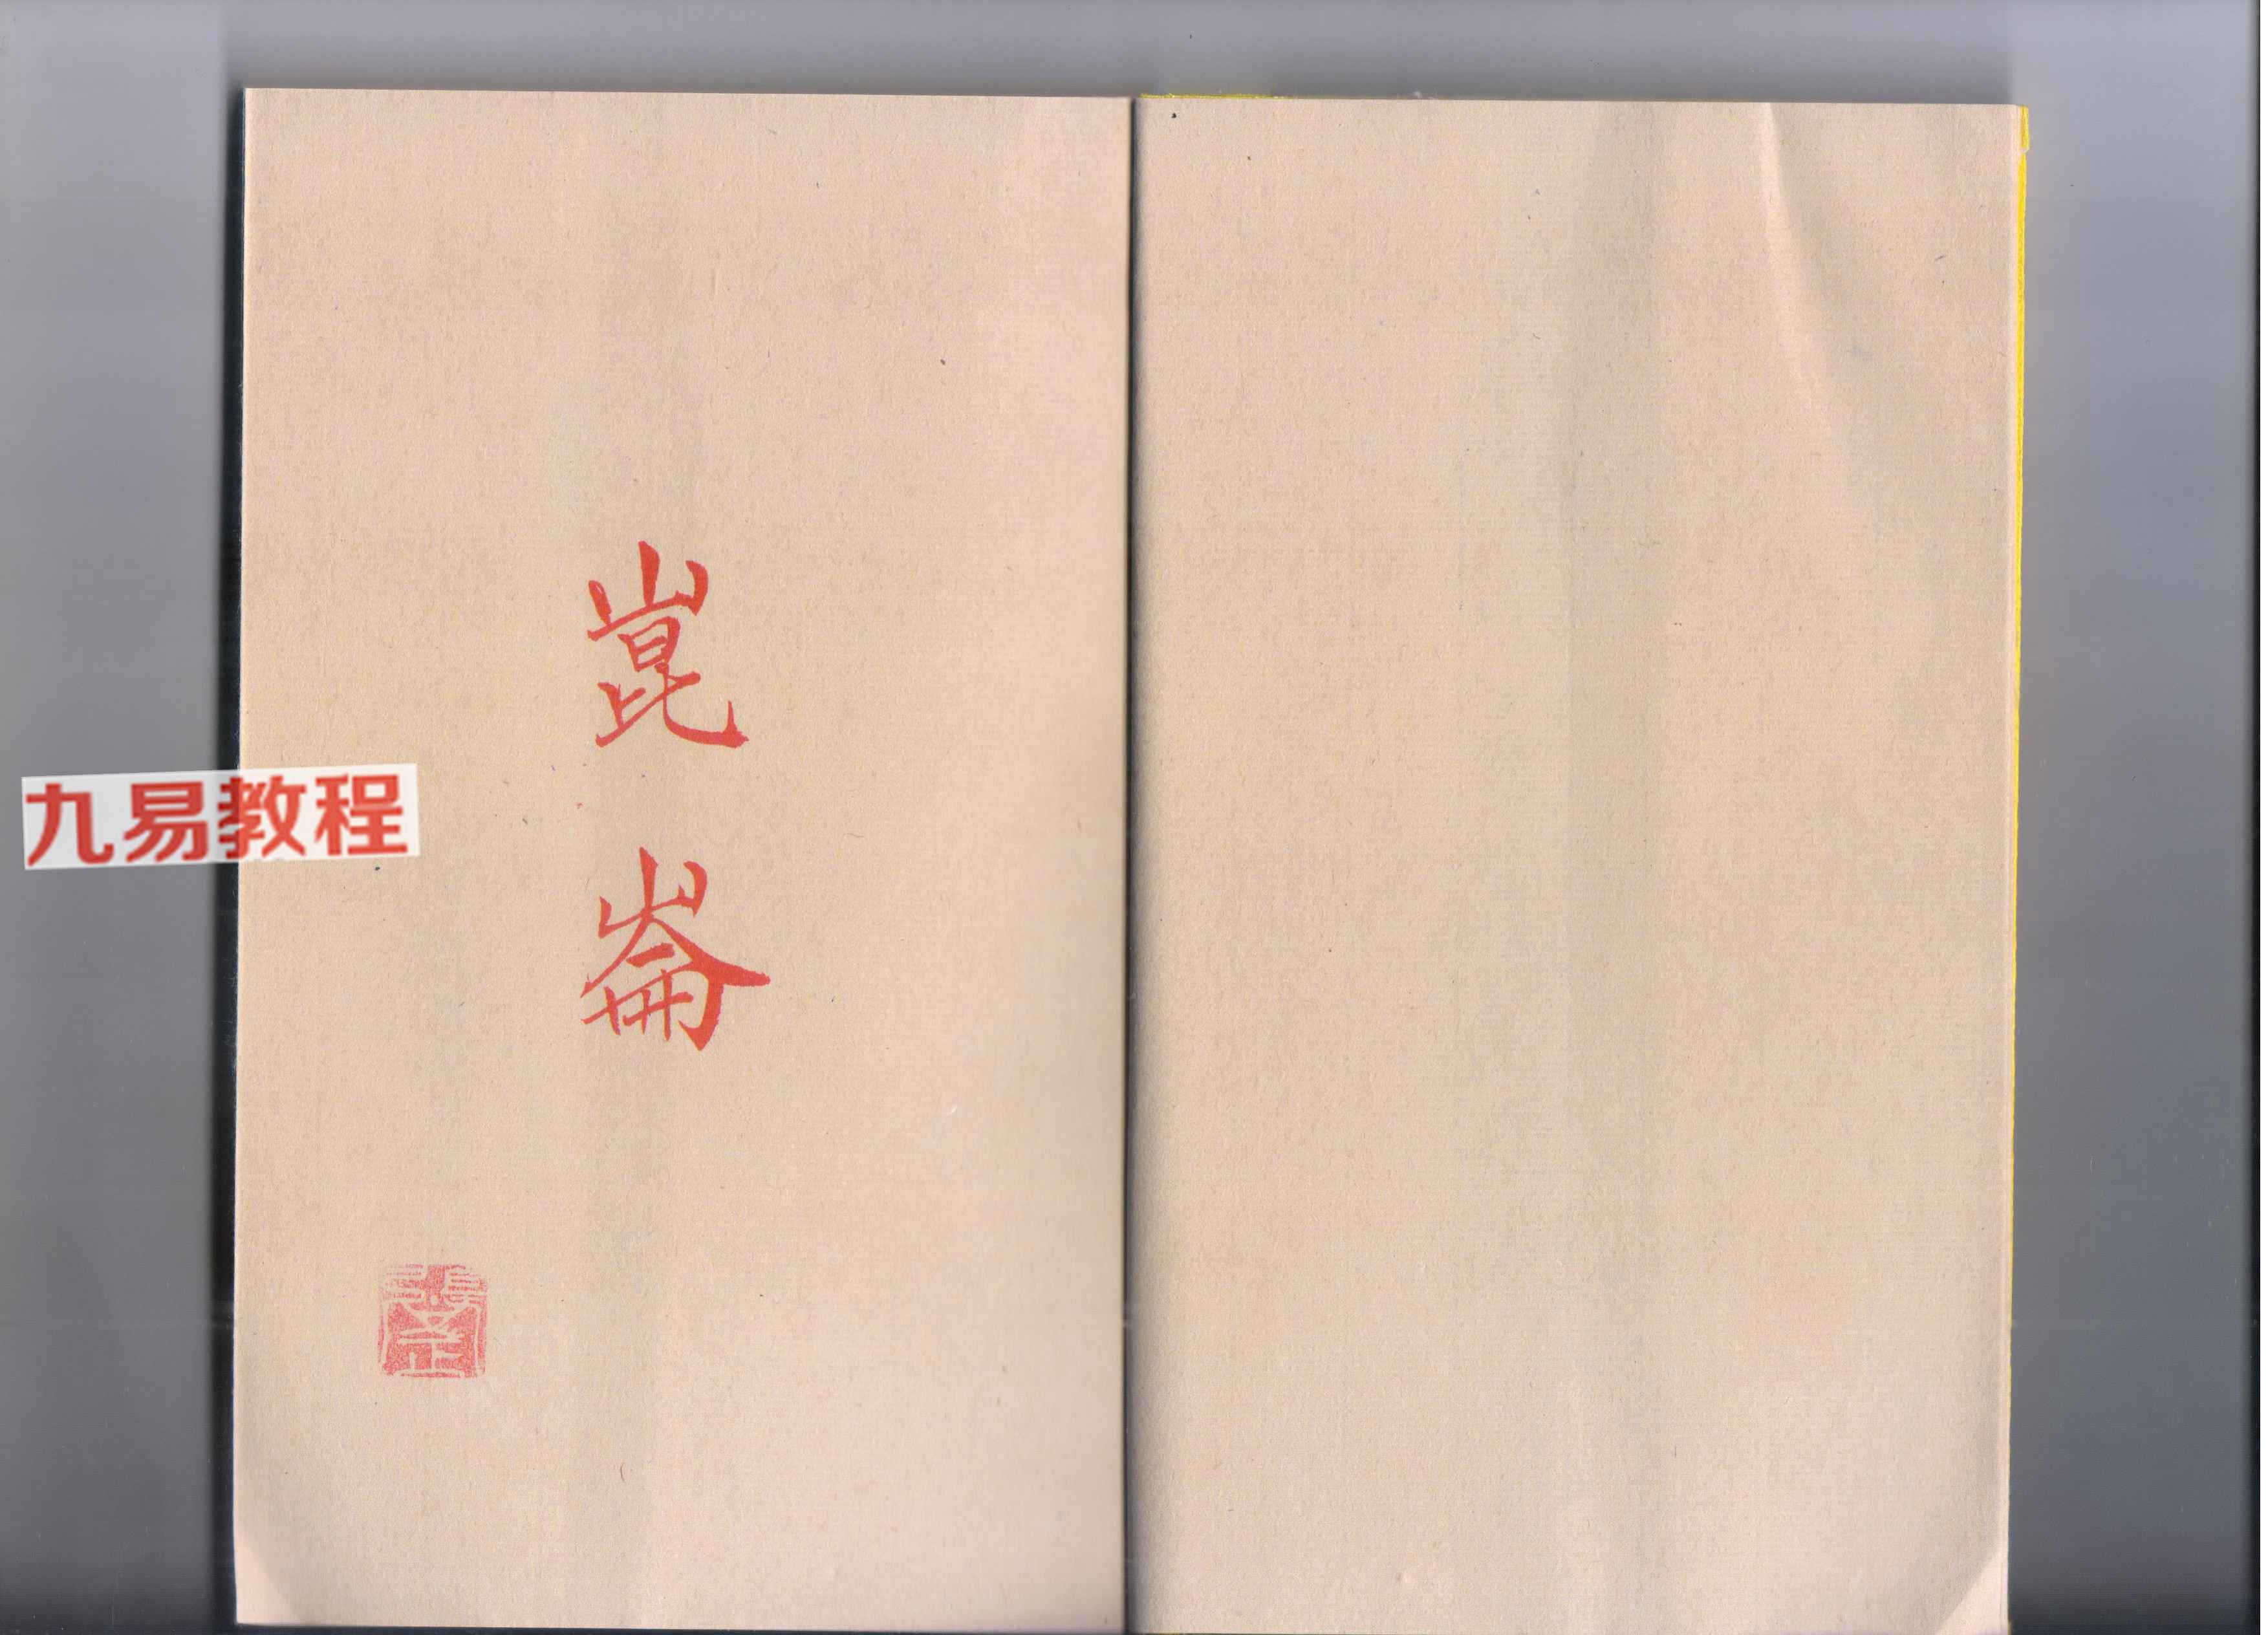 崑
崙
九易教程